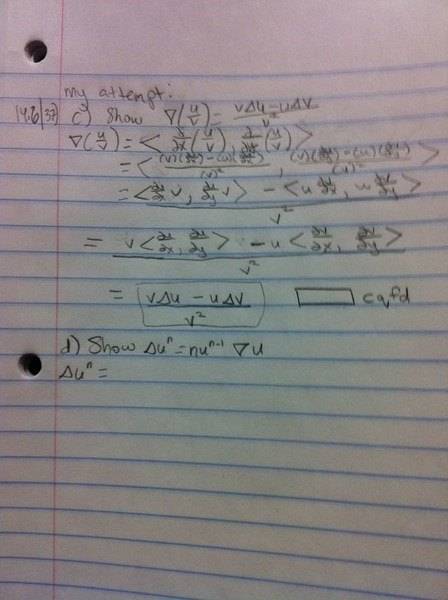 my attempt:
14.6|37) c) Show ∇(u/v) = (v∆u - u∆v)/v²
∇(u/v) = <∂/∂x (u/v), ∂/∂x (u/v)>
= <((v)(∂u/∂x) - (u)(∂v/∂x))/(v)², ((v)(∂u/∂y) - (u)(∂v/∂y))/(v)²>
= (<∂u/∂x v, ∂u/∂y v> - <u ∂v/∂x, u ∂v/∂y>)/v²
= (v<∂u/∂x, ∂u/∂y> - u<∂v/∂x, ∂v/∂y>)/v²
= (v∆u - u∆v)/v² cqfd
d) Show ∆uⁿ = nuⁿ⁻¹ ∇u
∆uⁿ =